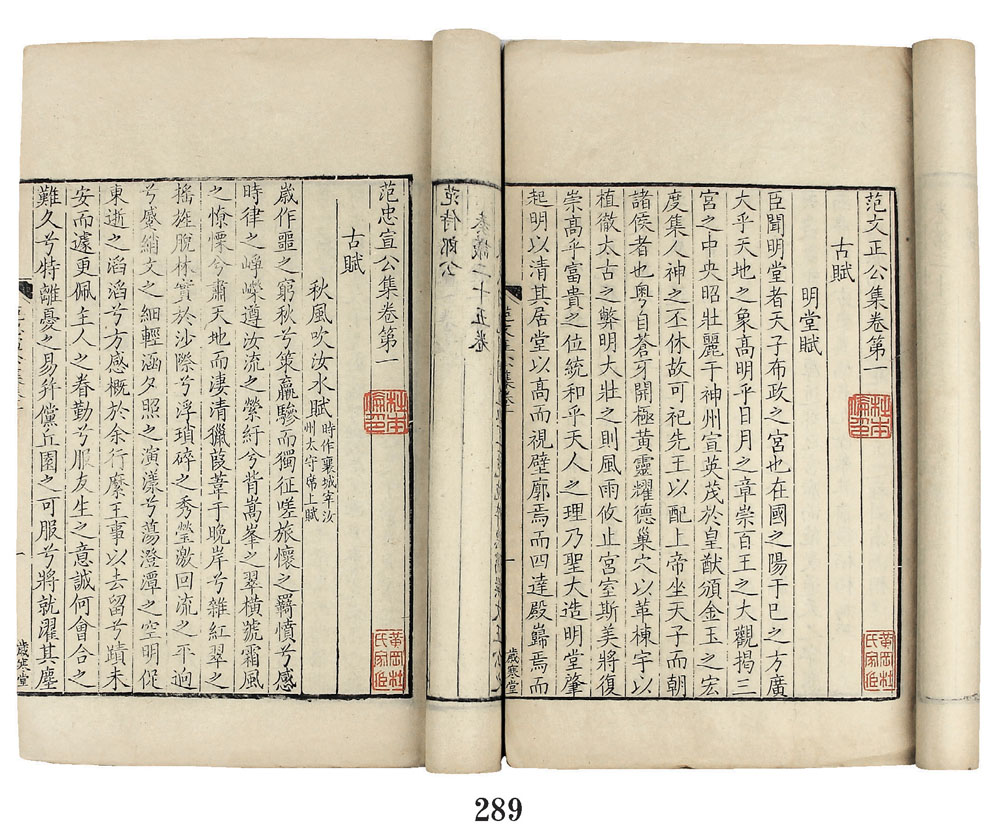 范文正公集卷第一
古賦
明堂賦
臣聞明堂者天子布政之宮也在國之陽于巳之方廣
大乎天地之象高明乎日月之章崇百王之大觀揭三
宮之中央昭壯麗于神州宣英茂於皇猷頒金玉之宏
度集人神之丕休故可祀先王以配上帝坐天子而朝
諸侯者也粤自蒼牙開極黃靈耀德巢穴以革棟宇以
植徹太古之弊明大壯之則風雨攸止宮室斯美將復
崇高乎富貴之位統和乎天人之理乃聖大造明堂肇
起明以清其居堂以高而視壁廓焉而四達殿巋焉而
歲寒堂
杜本偏印
黃岡杜氏家臣
奏議二十五卷
范侍郎公
范忠宣公集卷第一
古賦
秋風吹汝水賦
時作襄城宰汝
州太守席上賦
歲作噩之窮秋兮策羸驂而獨征嗟旅懷之羇憤兮感
時律之崢嶸遵汝流之縈紆兮背嵩峯之翠橫號霜風
之憭慄兮肅天地而淒清獵葭葦于晚岸兮雜紅翠之
搖旌脫林實於沙際兮浮瑣碎之秀瑩激回流之平逈
兮蹙綃文之細輕涵夕照之演漾兮蕩澄潭之空明促
東逝之滔滔兮方感概於余行縻王事以去留兮蹟未
安而遽更佩主人之眷勤兮服友生之意誠何會合之
難久兮特離憂之易幷黨丘園之可服兮將就濯其塵
歲寒堂